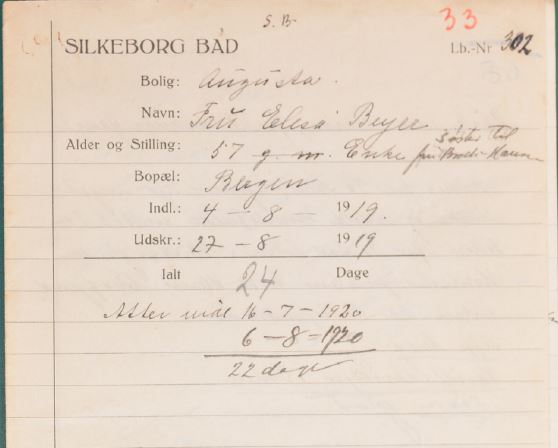 S. B.
33
SILKEBORG BAD
Lb.-Nr 302
Bolig: Augusta.
Navn: Fru Elisa Beyer
Alder og Stilling: 57 g. m. Enke søster til fru
Bopæl: Bergen
Indl.: 4 - 8 - 1919.
Udskr.: 27 - 8 1919
Ialt 24 Dage
Atter indl 16 - 7 - 1920
6 - 8 - 1920
22 dage